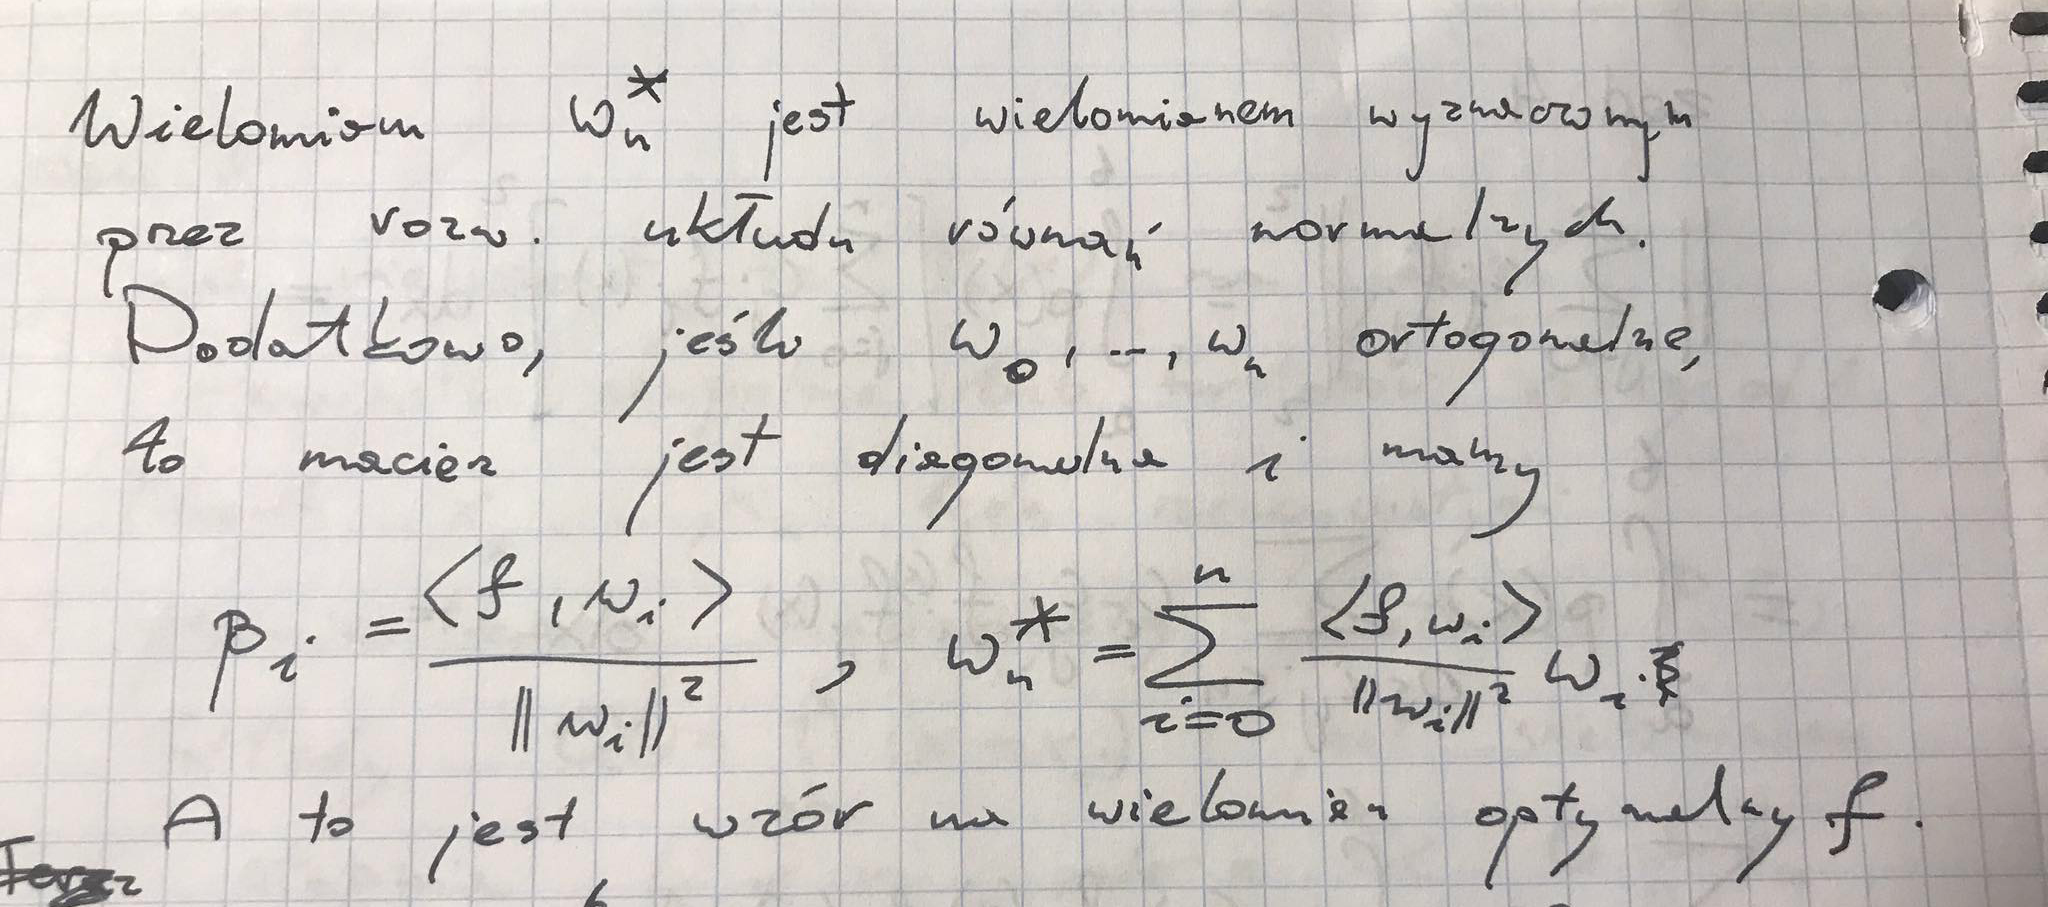 Wielomian w_n^* jest wielomianem wyznaczonym
przez rozw. układu równań normalnych.
Dodatkowo, jeśli w_0, ..., w_n ortogonalne,
to macierz jest diagonalna i mamy
β_i = <f, w_i> / ||w_i||^2 , w_n^* = ∑_{i=0}^{n} <f, w_i> / ||w_i||^2 w_i.
A to jest wzór na wielomian optymalny f.